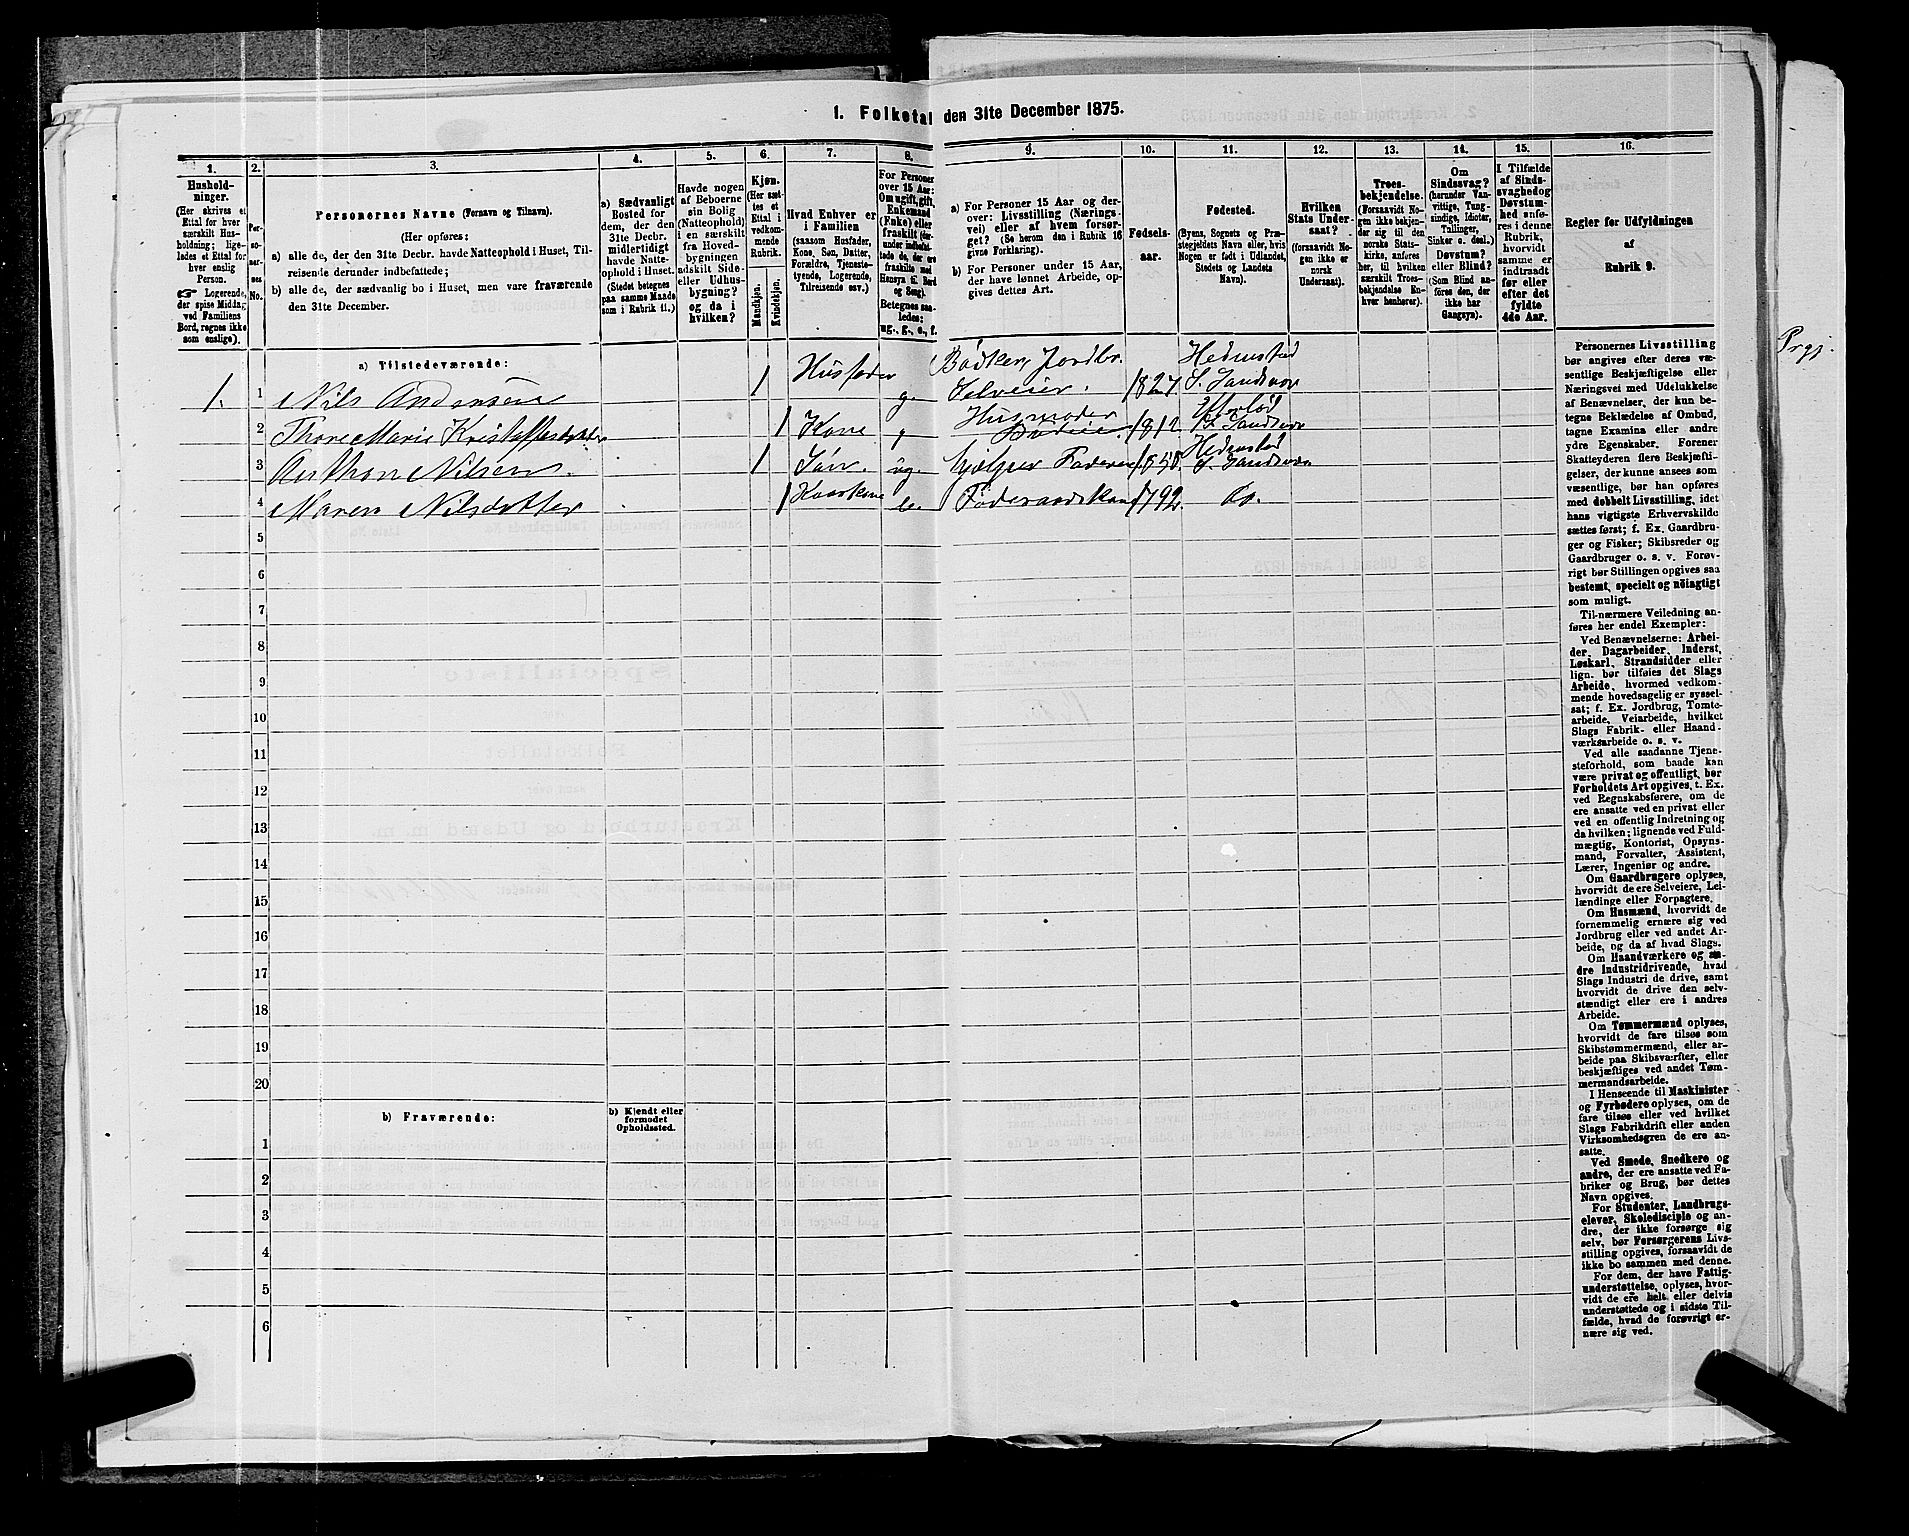 1. Folketal den 31te December 1875.
1.
Hushold-
ninger.
(Her skrives et
Ettal for hver
særskilt Hus-
holdning; lige-
ledes et Ettal for
hver enslig
Person.
☞ Logerende,
der spise Middag
ved Familiens
Bord, regnes ikke
som enslige).
2.
Per-
so-
ner-
nes
No.
3.
Personernes Navne (Fornavn og Tilnavn).
(Her opføres:
a) alle de, der den 31te Decbr. havde Natteophold i Huset, Til-
reisende derunder indbefattede;
b) alle de, der sædvanlig bo i Huset, men vare fraværende
den 31te December.
4.
a) Sædvanligt
Bosted for
dem, der den
31te Decbr.
midlertidigt
havde Natte-
ophold i Huset.
(Stedet betegnes
paa samme Maade
som i Rubrik 11.)
5.
Havde nogen
af Beboerne
sin Bolig
(Natteophold)
i en særskilt
fra Hoved-
bygningen
adskilt Side-
eller Udhus-
bygning?
og da i
hvilken?
6.
Kjøn.
(Her sæt-
tes et
Ettal i
vedkom-
mende
Rubrik.
Mandkjøn.
Kvindekjøn.
7.
Hvad Enhver er
i Familien
(saasom Husfader,
Kone, Søn, Datter,
Forældre, Tjeneste-
tyende, Logerende,
Tilreisende osv.)
8.
For Personer
over 15 Aar:
Om ugift, gift,
Enkemand
(Enke) eller
fraskilt
Betegnes saa-
ledes:
ug., g., e., f.
9.
a) For Personer 15 Aar og der-
over: Livsstilling (Nærings-
vei) eller af hvem forsør-
get? (Se herom den i Rubrik 16
givne Forklaring).
b) For Personer under 15 Aar,
der have lønnet Arbeide, op-
gives dettes Art.
10.
Fødsels-
aar.
11.
Fødested.
(Byens, Sognets og Præ-
stegjeldets Navn eller, hvis
Nogen er født i Udlandet,
Stedets og Landets
Navn).
12.
Hvilken
Stats Under-
saat?
(forsaavidt No-
gen ikke er
norsk
Undersaat).
13.
Troes-
bekjendelse.
(Forsaavidt No-
gen ikke bekjen-
der sig til den
norske Stats-
kirke, anføres
her, til hvilken
særskilt Troes-
bekjendelse En-
hver henhører).
14.
Om
Sindssvag?
(herunder Van-
vittige, Tung-
sindige, Idioter,
Tullinger,
Sinker o. desl.)
Døvstum?
eller Blind?
(Som Blind an-
føres den, der
ikke har
Gangsyn).
15.
I Tilfælde
af Sinds-
svaghed og
Døvstum-
hed anfø-
res i denne
Rubrik,
hvorvidt
samme er
indtraadt
før eller
efter det
fyldte
4de Aar.
16.
Regler for Udfyldningen
af
Rubrik 9.
a) Tilstedeværende:
1. 1 Nils Andersen 1 Husfader g. Bødker, Jordbr. Selveier. 1827. Hedenstad S. Sandsvær
2 Thore Marie Kristoffersdatter 1 Kone g Husmoder 1812 Eftelød S. Sandsvær
3 Anthon Nilsen. 1 Søn. ug. hjælper Faderen Hedenstad S. Sandsvær
4 Maren Nilsdatter 1 e. Føderaadskone 1792. do.
5
6
7
8
9
10
11
12
13
14
15
16
17
18
19
20
b) Fraværende:
b) Kjendt eller
formodet
Opholdssted.
1
2
3
4
5
6
Personernes Livsstilling
bør angives efter deres væ-
sentlige Beskjæftigelse eller
Næringsvei med Udelukkelse
af Benævnelser, der kun be-
tegne Beklædelse af Ombud,
tagne Examina eller andre
ydre Egenskaber. Forener
Skatteyderen flere Beskjæfti-
gelser, der kunne ansees som
væsentlige, bør han opføres
med dobbelt Livsstilling, idet
hans vigtigste Erhvervskilde
sættes først; f. Ex. Gaardbru-
ger og Fisker; Skibsreder og
Gaardbruger o. s. v. Forøv-
rigt bør Stillingen opgives saa
bestemt, specielt og nöiagtigt
som muligt.
Til nærmere Veiledning an-
føres her endel Exempler:
Ved Benævnelserne: Arbei-
der, Dagarbeider, Inderst,
Løskarl, Strandsidder eller
lign. bør tilføies det Slags
Arbeide, hvormed vedkom-
mende hovedsagelig er syssel-
sat; f. Ex. Jordbrug, Tomte-
arbeide, Veiarbeide, hvilket
Slags Fabrik- eller Haand-
værksarbeide o. s. v.
Ved alle saadanne Tjene-
steforhold, som baade kan
være privat og offentligt, bør
Forholdets Art opgives, t. Ex.
ved Regnskabsførere, om de
ere ansatte ved en privat eller
ved en offentlig Indretning og
da hvilken; lignende ved Fuld-
mægtig, Kontorist, Opsyns-
mand, Forvalter, Assistent,
Lærer, Ingeniør og andre.
Om Gaardbrugere oplyses,
hvorvidt de ere Selveiere, Lei-
lændinge eller Forpagtere.
Om Husmænd, hvorvidt de
fornemmelig ernære sig ved
Jordbrug eller ved andet Ar-
beide, og da af hvad Slags.
Om Haandværkere og an-
dre Industridrivende, hvad
Slags Industri de drive, samt
hvorvidt de drive den selv-
stændigt eller ere i andres
Arbeide.
Om Tømmermænd oplyses,
hvorvidt de fare tilsøs som
Skibstømmermænd, eller ar-
beide paa Skibsværfter, eller
beskjæftiges ved andet Tøm-
mermandsarbeide.
I Henseende til Maskinister
og Fyrbødere oplyses, om de
fare tilsøs eller ved hvilket
Slags Fabrikdrift eller anden
Virksomhedsgren de ere an-
satte.
Ved Smede, Snedkere og
andre, der ere ansatte ved Fa-
briker og Brug, bør dettes
Navn opgives.
For Studenter, Landbrugs-
elever, Skoledisciple og an-
dre, der ikke forsørge sig
selv, bør Forsørgerens Livs-
stilling opgives, forsaavidt de
ikke bo sammen med denne.
For dem, der have Fattig-
understøttelse, oplyses, hvor-
vidt de ere helt eller delvis
understøttede og i sidste Til-
fælde, hvad de forøvrigt er-
nære sig ved.